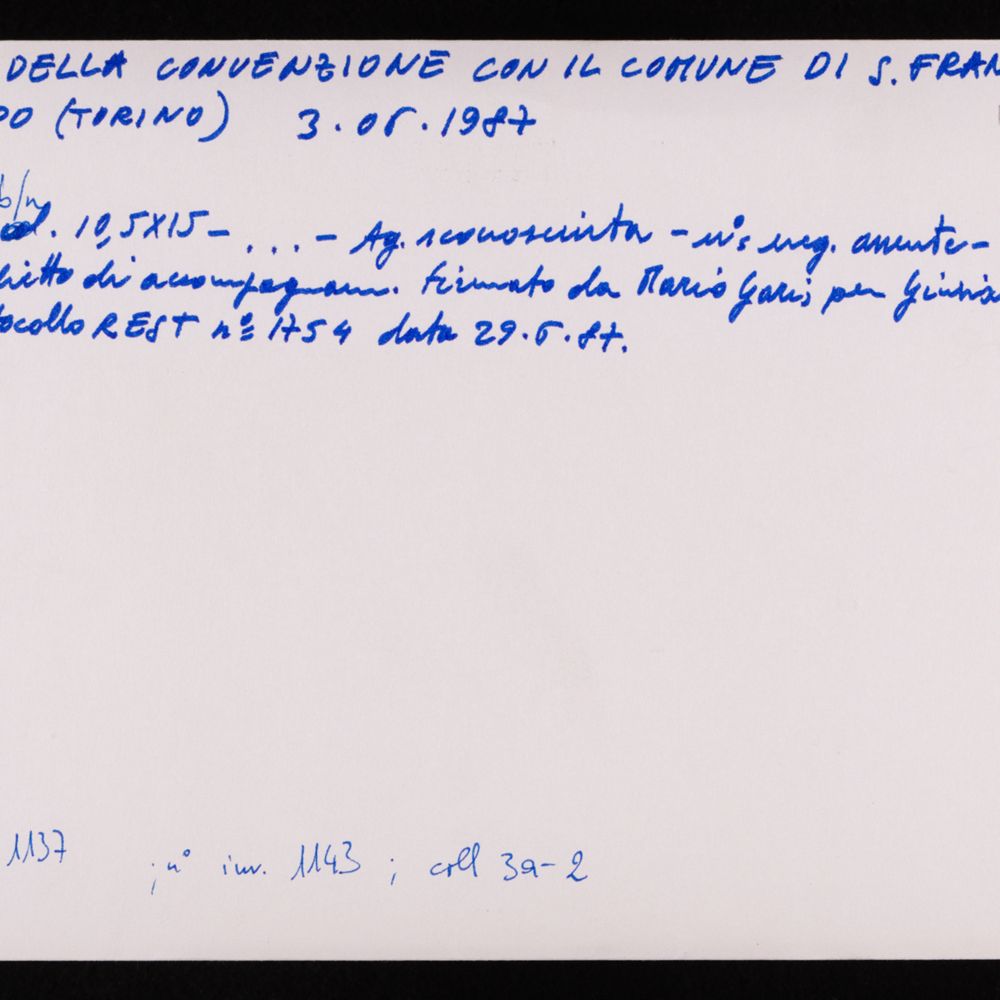 DELLA CONVENZIONE CON IL COMUNE DI S. FRAN
DO (TORINO) 3.06.1987
b/n
10,5X15 - ... - Ag. sconosciuta - n° neg. assente -
lietto di accompagnam. firmato da Mario Garis per
tocollo REST n° 1754 data 29.6.87.
1137
; n° inv. 1143 ; coll 3a-2